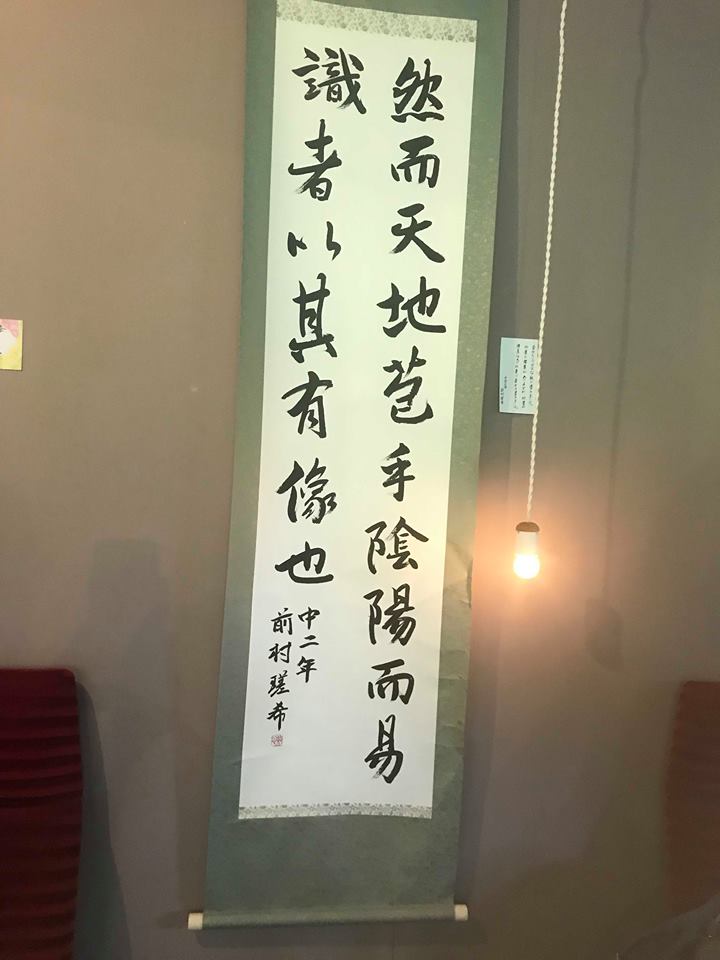 然而天地苞乎陰陽而易
識者以其有像也
中二年
前村瑳希